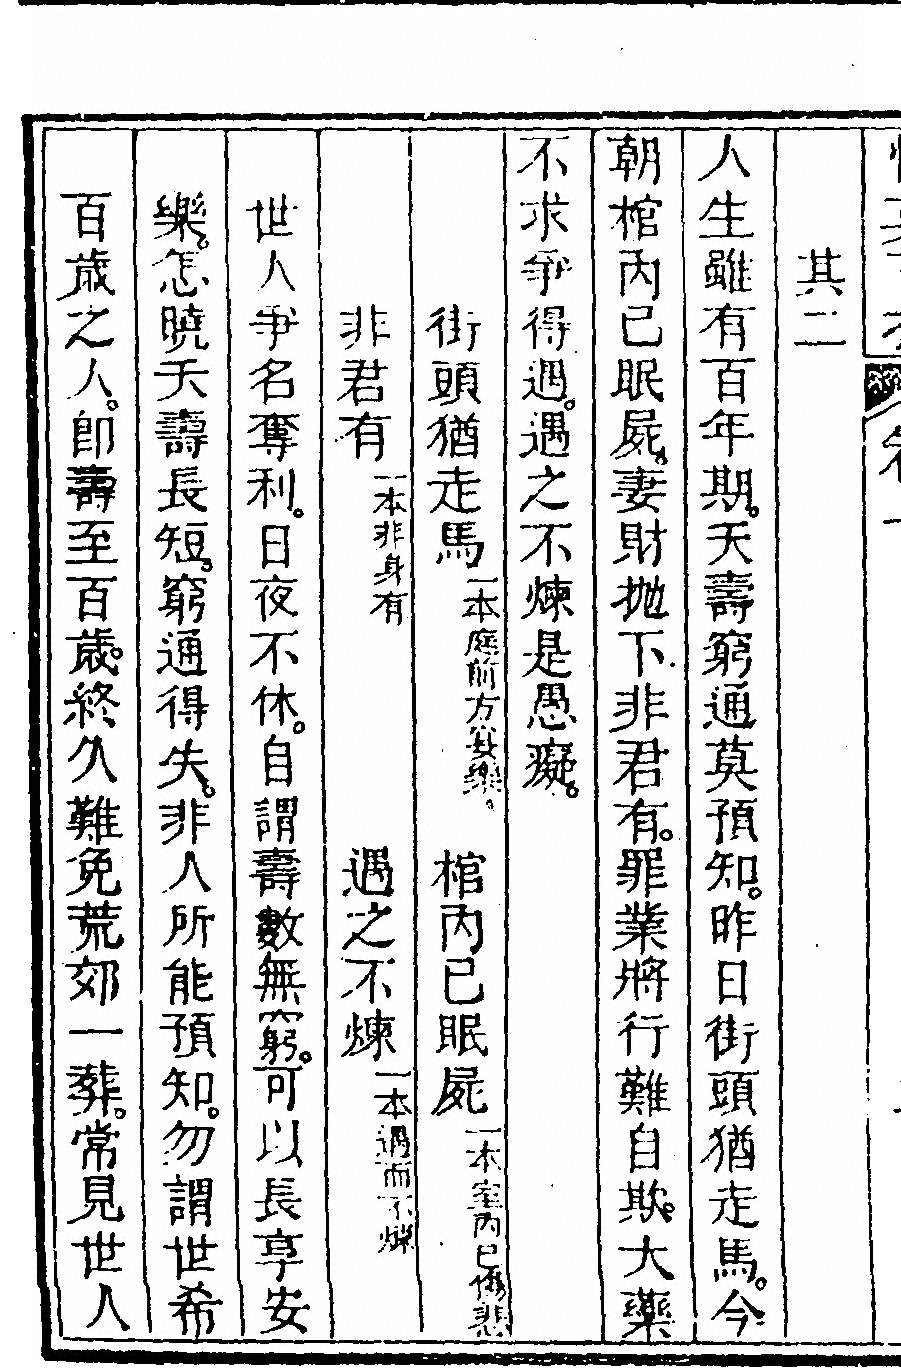 其二
人生雖有百年期。夭壽窮通莫預知。昨日街頭猶走馬。今
朝棺内已眠屍。妻財抛下非君有。罪業將行難自欺。大藥
不求爭得遇。遇之不煉是愚癡。
街頭猶走馬 一本庭前方宴樂。 棺内已眠屍 一本室内已傷悲
非君有 一本非身有 遇之不煉 一本遇而不煉
世人爭名奪利。日夜不休。自謂壽數無窮。可以長享安
樂。怎曉夭壽長短。窮通得失。非人所能預知。勿謂世希
百歲之人。即壽至百歲。終久難免荒郊一葬。常見世人